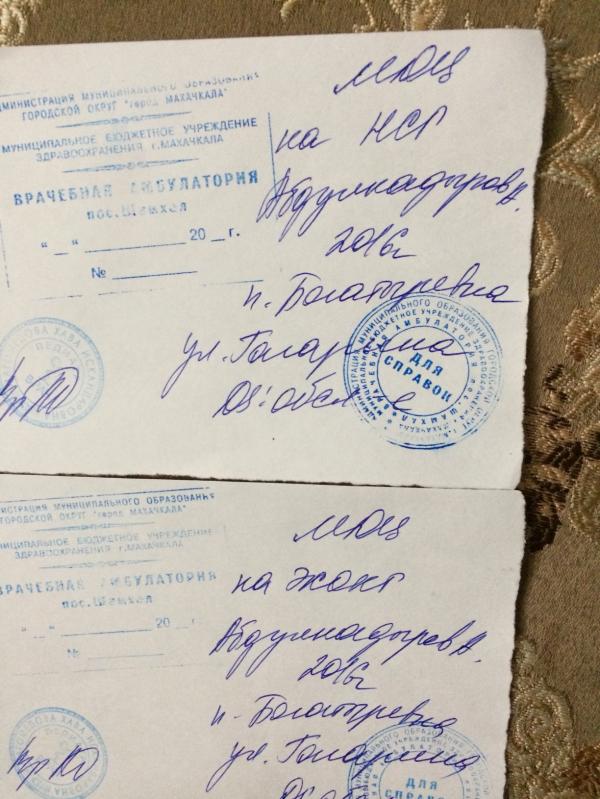 АДМИНИСТРАЦИЯ МУНИЦИПАЛЬНОГО ОБРАЗОВАНИЯ
ГОРОДСКОЙ ОКРУГ "город МАХАЧКАЛА"
МУНИЦИПАЛЬНОЕ БЮДЖЕТНОЕ УЧРЕЖДЕНИЕ
ЗДРАВООХРАНЕНИЯ г.МАХАЧКАЛА
ВРАЧЕБНАЯ АМБУЛАТОРИЯ
пос.Шамхал
"__" ________ 20__г.
№ ________
МДЦ
на НСГ
Абдулкадыров А.
2016г
п. Богатыревка
ул. Гагарина
Ds: обслед
ДЛЯ
СПРАВОК
АДМИНИСТРАЦИЯ МУНИЦИПАЛЬНОГО ОБРАЗОВАНИЯ
ГОРОДСКОЙ ОКРУГ "город МАХАЧКАЛА"
МУНИЦИПАЛЬНОЕ БЮДЖЕТНОЕ УЧРЕЖДЕНИЕ
ЗДРАВООХРАНЕНИЯ г.МАХАЧКАЛА
ВРАЧЕБНАЯ АМБУЛАТОРИЯ
пос.Шамхал
"__" ________ 20__г.
№ ________
МДЦ
на ЭХОКГ
Абдулкадыров А.
2016г
п. Богатыревка
ул. Гагарина
ДЛЯ